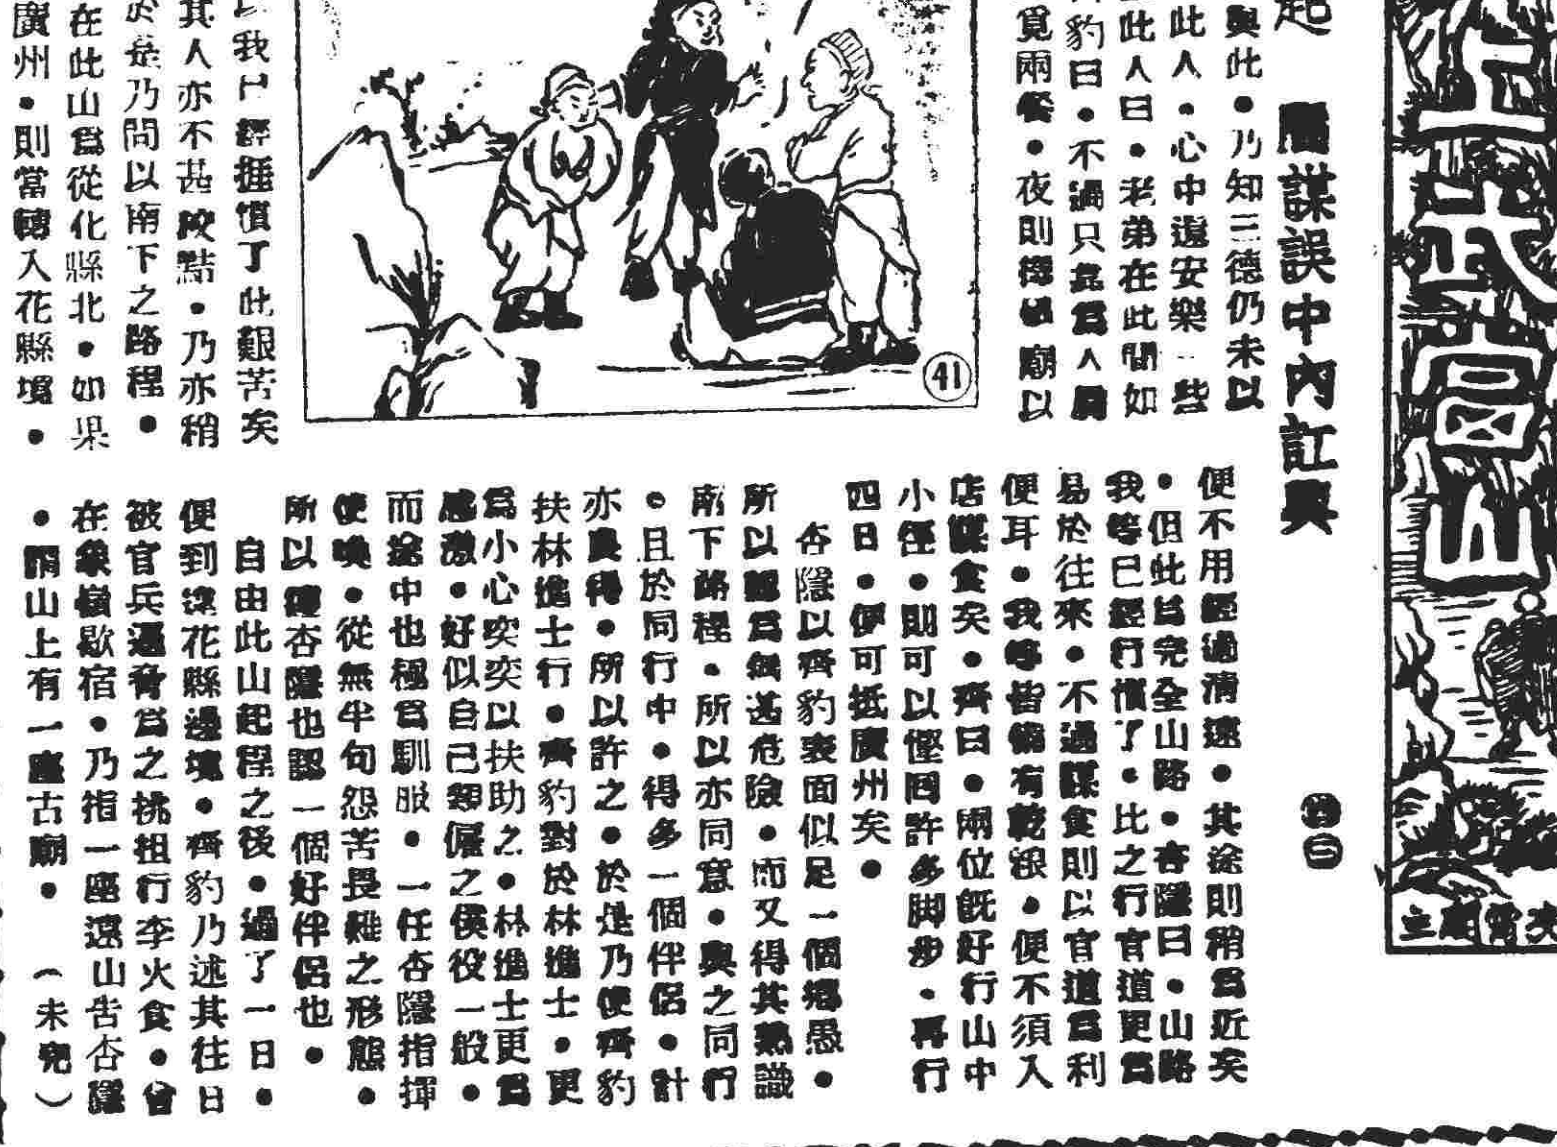 上武當山
起
謀誤中內訌興
四二
與此•乃知三德仍未以
此人•心中還安樂一些
此人曰•老弟在此間如
豹曰•不過只為人
覓兩餐•夜則廟以
我已經捱慣了此艱苦矣
其人亦不甚狡黠•乃亦稍
於是乃問以南下之路程•
在此山為從化縣北•如果
廣州•則當轉入花縣境•
便不用經過清遠•其途則稍為近矣
•但此為完全山路•杏隱曰•山路
我等已經行慣了•比之行官道更為
易於往來•不過謀食則以官道為利
便耳•我等皆備有乾粮•便不須入
店謀食矣•齊曰•兩位既好行山中
小徑•則可以慳囘許多脚步•再行
四日•便可抵廣州矣•
杏隱以齊豹表面似足一個鄉愚•
所以認為無甚危險•而又得其熟識
南下路程•所以亦同意•與之同行
•且於同行中•得多一個伴侶•計
亦良得•所以許之•於是乃便齊豹
扶林進士行•齊豹對於林進士•更
為小心突突以扶助之•林進士更為
感激•好似自己類僱之僕役一般•
而途中也極為馴服•一任杏隱指揮
使喚•從無半句怨苦畏難之形態•
所以陳杏隱也認一個好伴侶也•
自由此山起程之後•過了一日•
便到達花縣邊境•齊豹乃述其往日
被官兵逼脅為之挑担行李火食•曾
在象嶺歇宿•乃指一座遠山告杏隱
•謂山上有一座古廟•（未完）
41